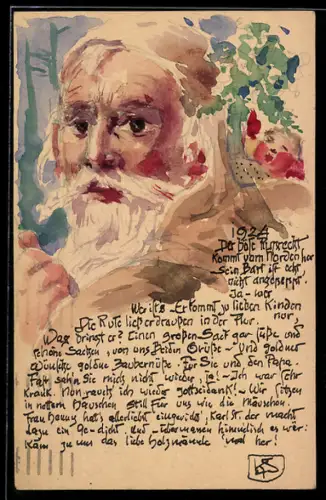 1924
Der böse Ruprecht
kommt vom Norden her
Sein Bart ist echt
nicht angeklebt.
Ja - wer
Wer ist's - Er kommt zu lieben Kinden
nur,
Die Rute lies er draußen in der Flur.
Was bringst er? Einen großen Sack gar süße und
schöne Sachen, von uns Beiden Grüße - Und goldner
Wünsche goldne Zaubernüße. Für Sie und den Papa.
Fast sahn Sie mich nicht wieder, ja! - Ich war sehr
krank. Nun rauch ich wieder gottseidank! - Wir sitzen
in nettem Häuschen still für uns wie die Mäuschen.
Frau hat's allerliebst eingericht, Karl St. der macht
dazu ein Ge-dicht. Und - Idermanen himmlisch es wär:
Käm zu uns das liebe mal her!